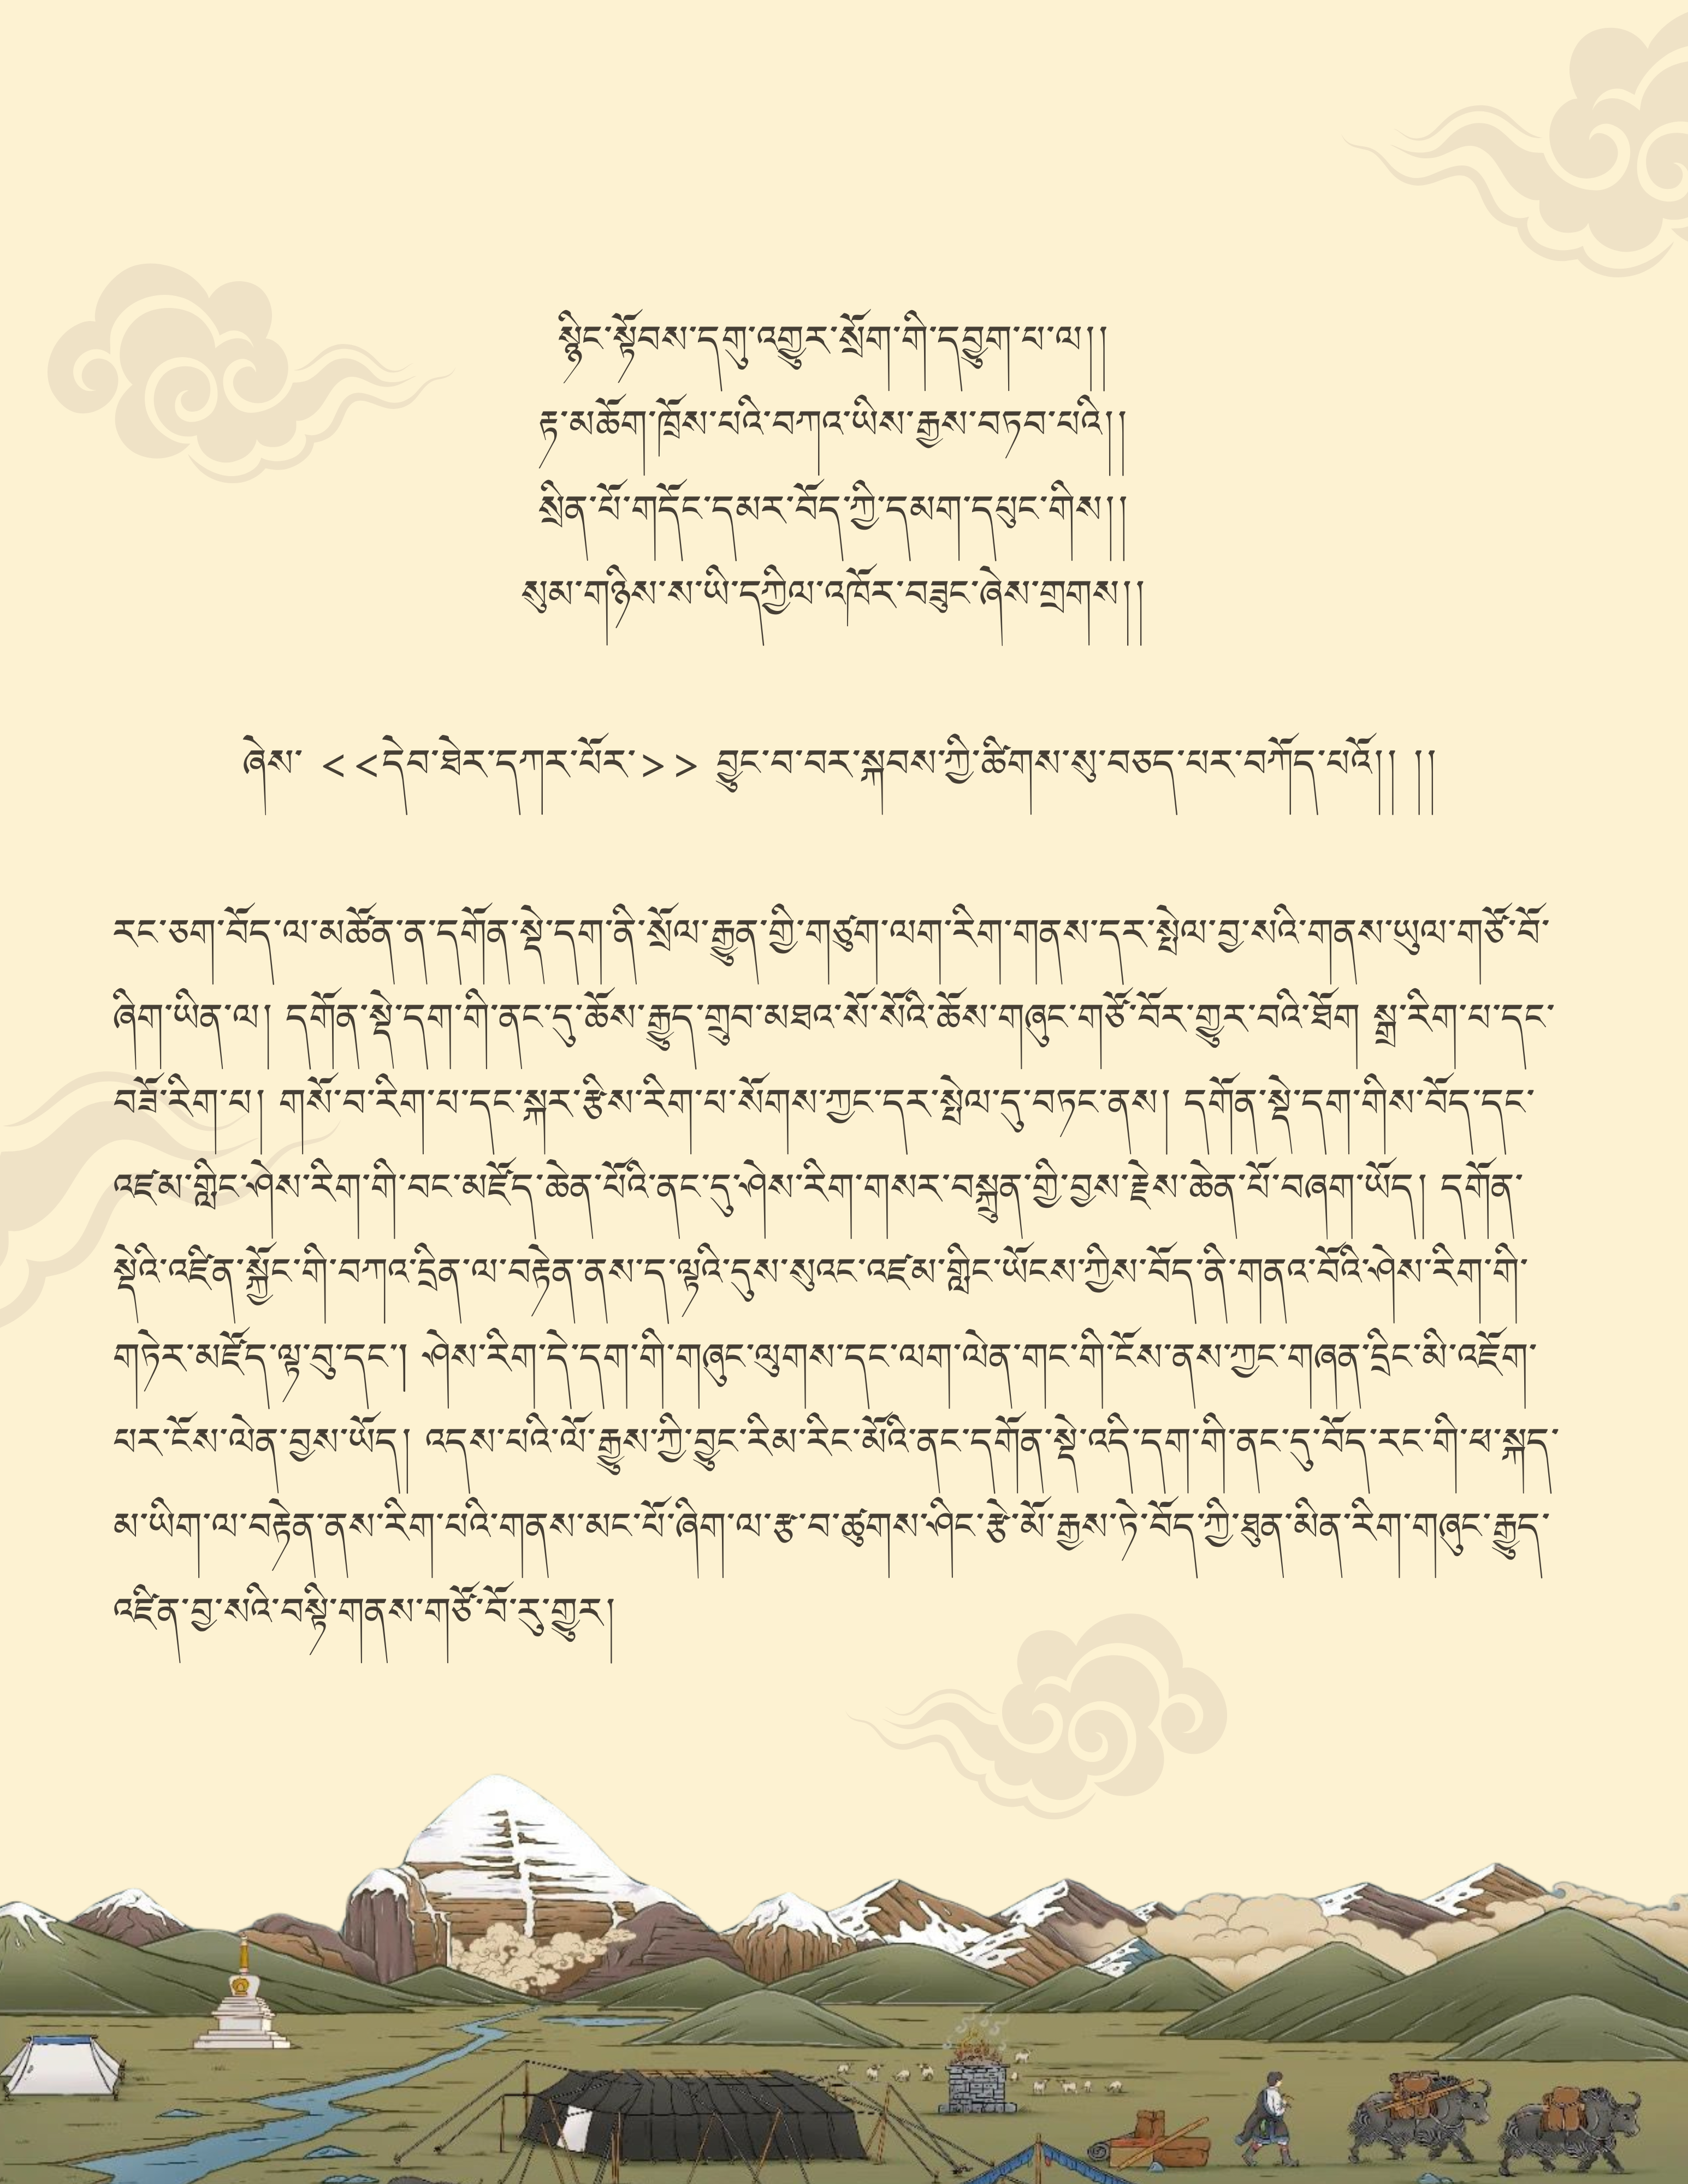 སྙིང་སྟོབས་དགུ་འགྱུར་སྲོག་གི་དབྱུག་པ་ལ།།
རྟ་མཆོག་ཁྲོས་པའི་བཀའ་ཡིས་རྒྱས་བཏབ་པའི།།
སྲིན་པོ་གདོང་དམར་བོད་ཀྱི་དམག་དཔུང་གིས།།
སུམ་གཉིས་ས་ཡི་དཀྱིལ་འཁོར་བཟུང་ཞེས་གྲགས།།
ཞེས་ <<དེབ་ཐེར་དཀར་པོར་>> བྱུང་བ་བར་སྐབས་ཀྱི་ཚིགས་སུ་བཅད་པར་བཀོད་པའོ།། །།
རང་ཅག་བོད་ལ་མཚོན་ན་དགོན་སྡེ་དག་ནི་སྲོལ་རྒྱུན་གྱི་གཙུག་ལག་རིག་གནས་དར་སྤེལ་བྱ་སའི་གནས་ཡུལ་གཙོ་བོ་
ཞིག་ཡིན་ལ། དགོན་སྡེ་དག་གི་ནང་དུ་ཆོས་རྒྱུད་གྲུབ་མཐའ་སོ་སོའི་ཆོས་གཞུང་གཙོ་བོར་གྱུར་བའི་ཐོག སྒྲ་རིག་པ་དང་
བཟོ་རིག་པ། གསོ་བ་རིག་པ་དང་སྐར་རྩིས་རིག་པ་སོགས་ཀྱང་དར་སྤེལ་དུ་བཏང་ནས། དགོན་སྡེ་དག་གིས་བོད་དང་
འཛམ་གླིང་ཤེས་རིག་གི་བང་མཛོད་ཆེན་པོའི་ནང་དུ་ཤེས་རིག་གསར་བསྐྲུན་གྱི་བྱས་རྗེས་ཆེན་པོ་བཞག་ཡོད། དགོན་
སྡེའི་འཛིན་སྐྱོང་གི་བཀའ་དྲིན་ལ་བརྟེན་ནས་ད་ལྟའི་དུས་སུའང་འཛམ་གླིང་ཡོངས་ཀྱིས་བོད་ནི་གནའ་བོའི་ཤེས་རིག་གི་
གཏེར་མཛོད་ལྟ་བུ་དང་། ཤེས་རིག་དེ་དག་གི་གཞུང་ལུགས་དང་ལག་ལེན་གང་གི་ངོས་ནས་ཀྱང་གཞན་དྲིང་མི་འཇོག་
པར་ངོས་ལེན་བྱས་ཡོད། འདས་པའི་ལོ་རྒྱུས་ཀྱི་བྱུང་རིམ་རིང་མོའི་ནང་དགོན་སྡེ་འདི་དག་གི་ནང་དུ་བོད་རང་གི་ཕ་སྐད་
མ་ཡིག་ལ་བརྟེན་ནས་རིག་པའི་གནས་མང་པོ་ཞིག་ལ་རྩ་བ་ཚུགས་ཤིང་རྩེ་མོ་རྒྱས་ཏེ་བོད་ཀྱི་ཐུན་མིན་རིག་གཞུང་རྒྱུད་
འཛིན་བྱ་སའི་བསྟི་གནས་གཙོ་བོ་རུ་གྱུར།